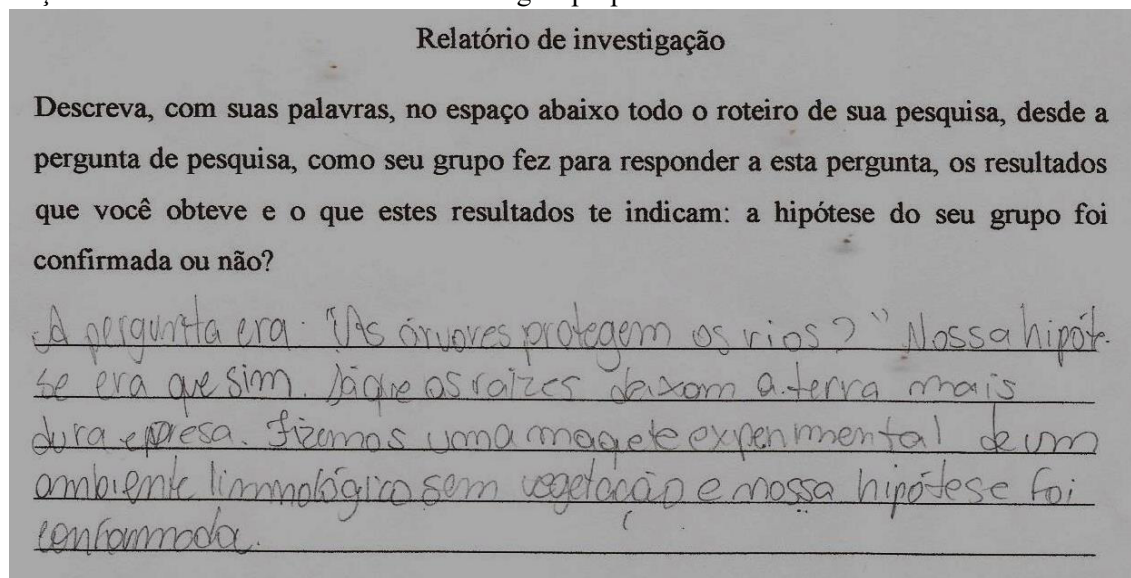 Relatório de investigação
Descreva, com suas palavras, no espaço abaixo todo o roteiro de sua pesquisa, desde a
pergunta de pesquisa, como seu grupo fez para responder a esta pergunta, os resultados
que você obteve e o que estes resultados te indicam: a hipótese do seu grupo foi
confirmada ou não?
A pergunta era: "As árvores protegem os rios?" Nossa hipóte-
se era que sim. Já que as raízes deixam a terra mais
dura e presa. Fizemos uma maquete experimental de um
ambiente limnológico sem vegetação e nossa hipótese foi